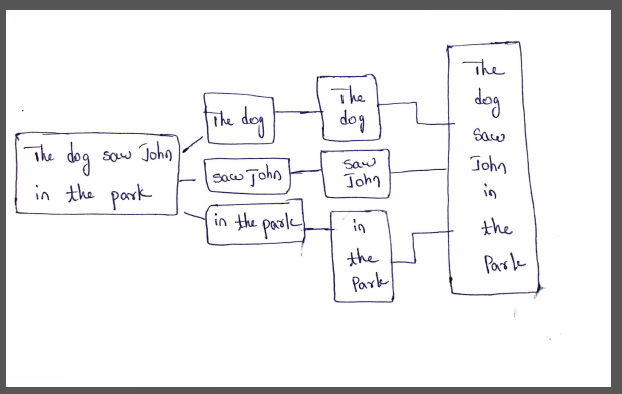 The dog saw John
in the park
The dog
saw John
in the park
The
dog
saw
John
in
the
Park
The
dog
saw
John
in
the
Park